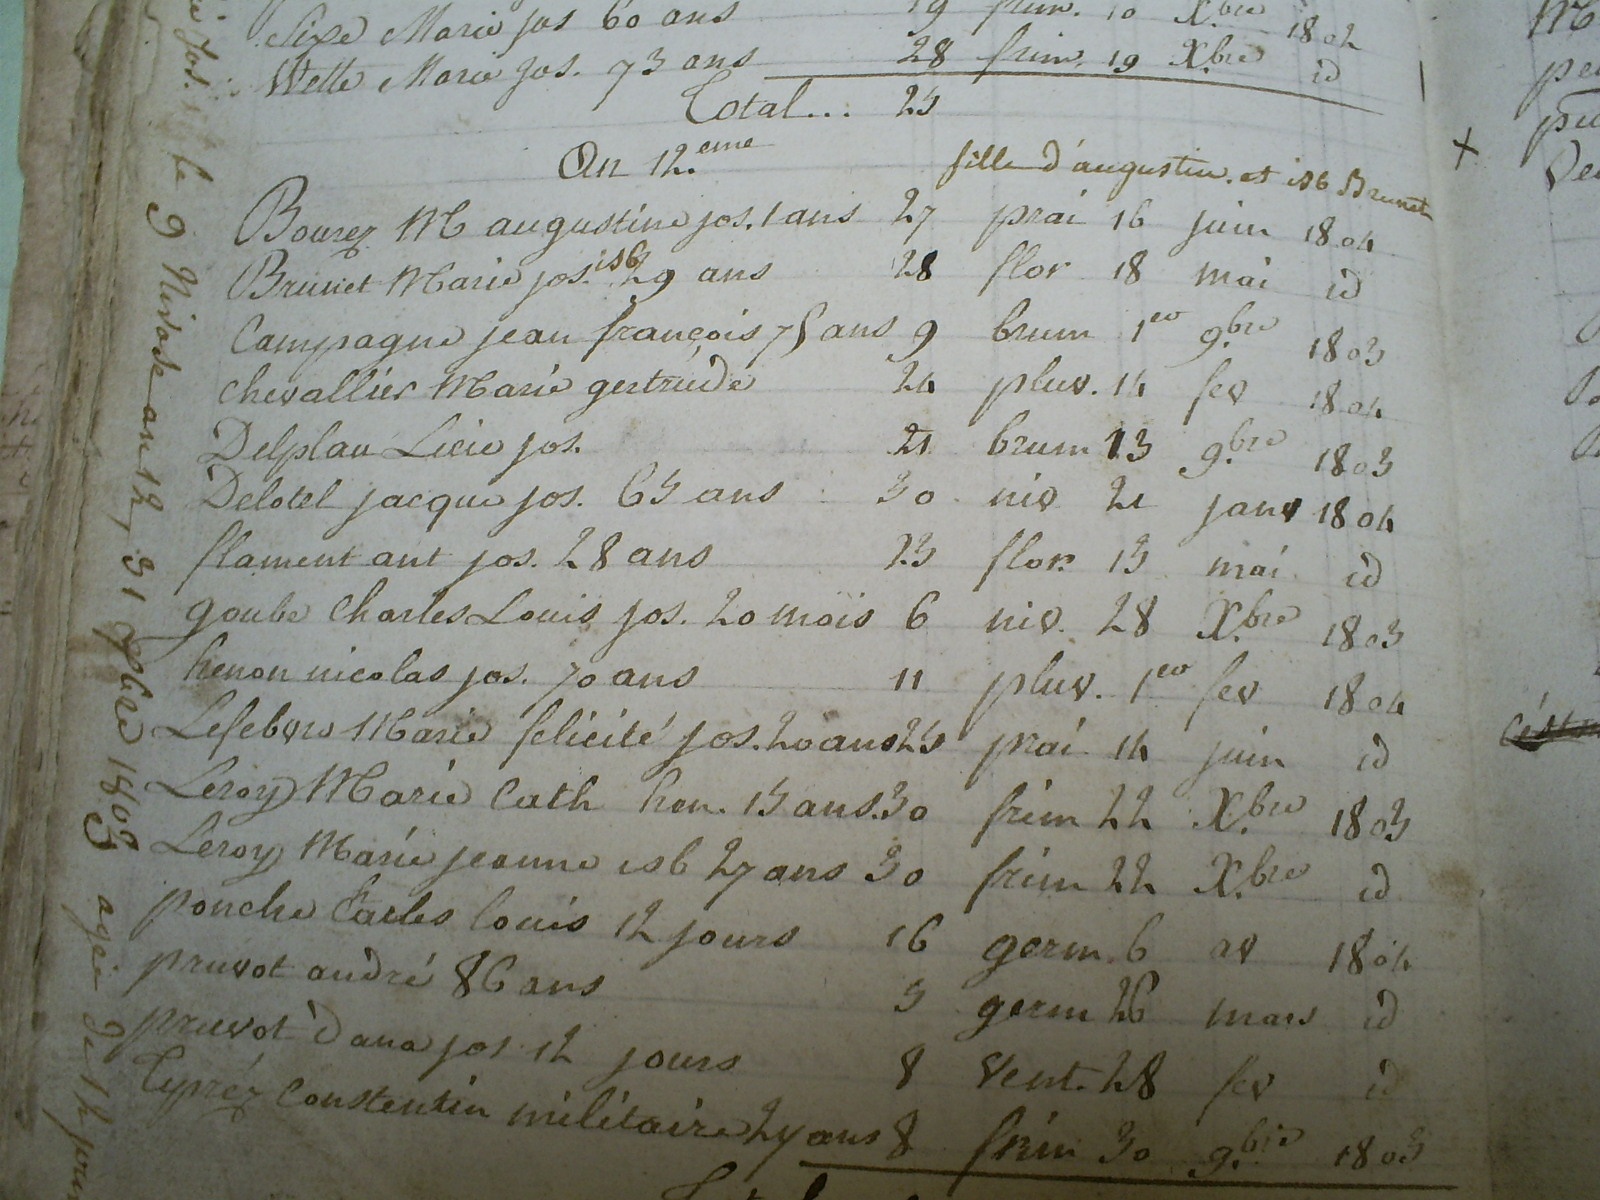 Sixe Marie jos 60 ans 19 frim. 10 Xbre 1802
Wette Marie Jos. 73 ans 28 frim. 19 Xbre id
Total... 25
An 12.eme
fille d'augustin. et isb Brunet
Bourez M augustine jos. 1 ans 27 prai 16 juin 1804
Brunet Marie jos. isb 29 ans 28 flor 18 mai id
Campagne jean françois 75 ans 9 brum 1er 9.bre 1803
chevallier Marie gertrude 24 pluv. 14 fev 1804
Delplau Licie jos. 21 brum 13 9.bre 1803
Delotel jacque jos. 65 ans 30 niv 21 janv 1804
flament ant jos. 28 ans 23 flor. 13 mai id
goube Charles Louis jos. 20 mois 6 niv. 28 X.bre 1803
henon nicolas jos. 70 ans 11 pluv. 1er fev 1804
Lefebvre Marie felicité jos. 20 ans 25 prai 14 juin id
Leroy Marie Cath hen. 15 ans. 30 frim 22 X.bre 1803
Leroy Marie jeanne isb 27 ans 30 frim 22 X.bre id
ponche Charles louis 12 jours 16 germ. 6 av 1804
pruvot andré 86 ans 5 germ 26 mars id
pruvot Dana jos 12 jours 8 vent. 28 fev id
Typréz Constentin militaire 24 ans 8 frim 30 9.bre 1803
jos. le 9 Nivose an 12, 31 Xbre 1803 agée de 12 jour